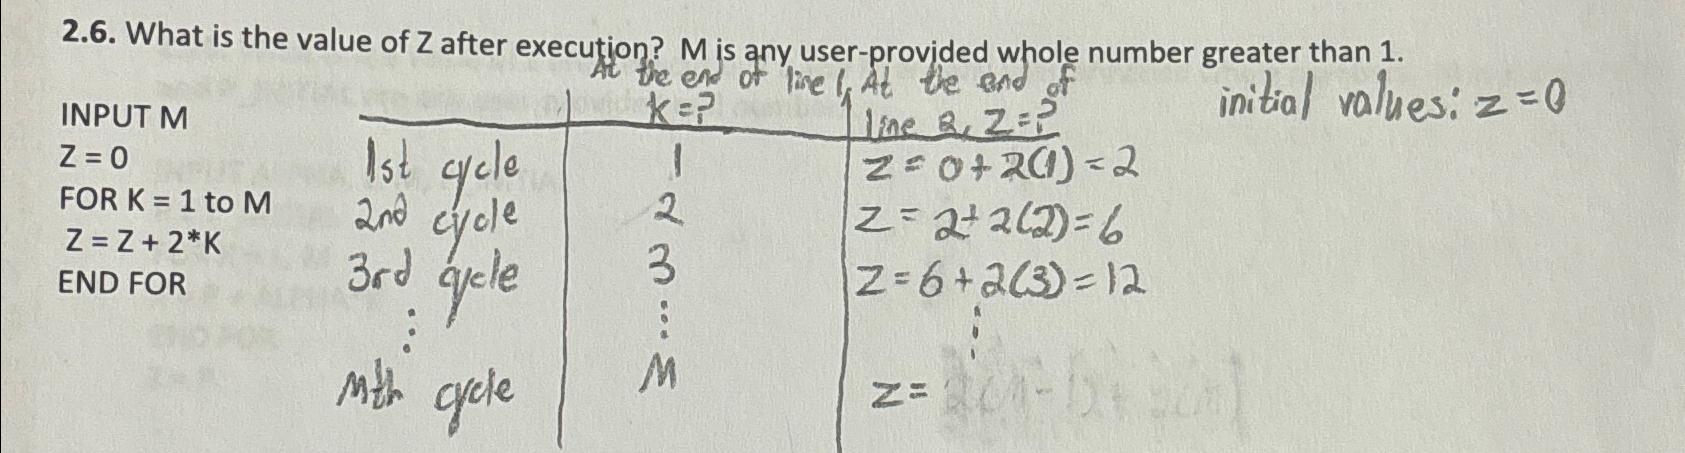 2.6. What is the value of Z after execution? M is any user-provided whole number greater than 1.
At the end of line 1, k=? At the end of line 2, Z=? initial values: z=0
INPUT M
Z = 0
FOR K = 1 to M
Z = Z + 2*K
END FOR
1st cycle 1 z = 0 + 2(1) = 2
2nd cycle 2 z = 2 + 2(2) = 6
3rd cycle 3 z = 6 + 2(3) = 12
⋮ ⋮ ⋮
Mth cycle M z =